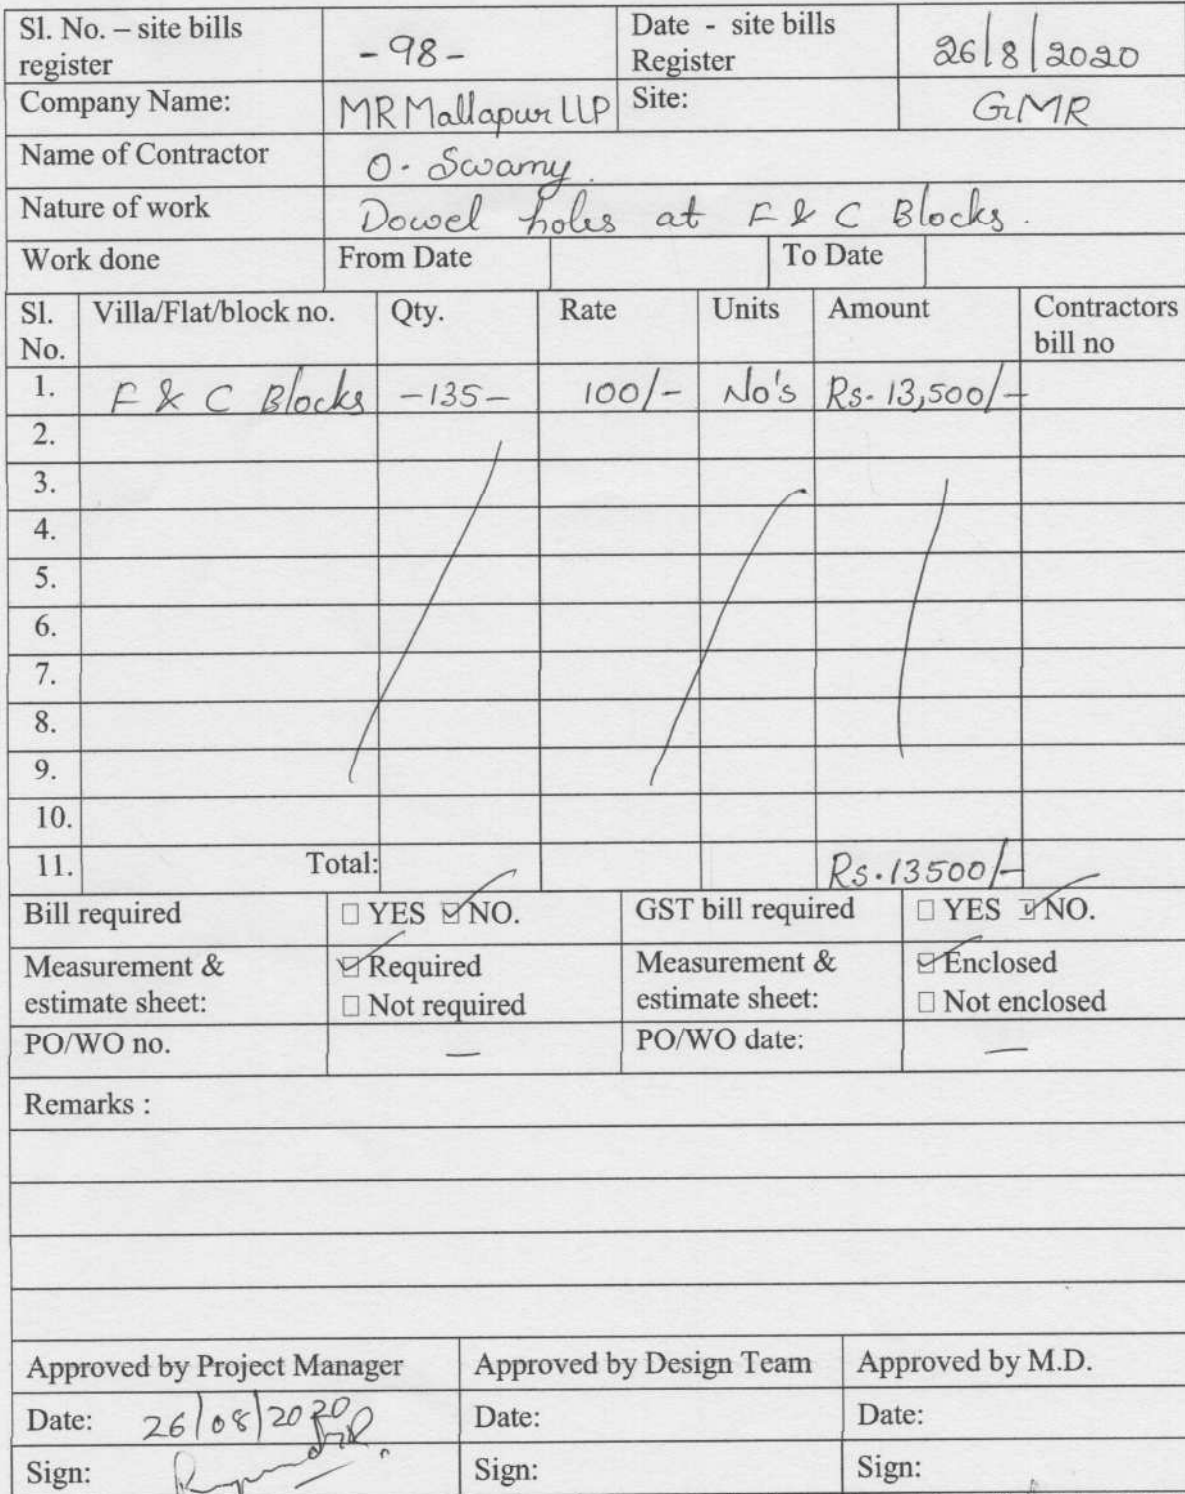 Sl. No. – site bills register -98- Date - site bills Register 26/8/2020
Company Name: MR Mallapur LLP Site: GMR
Name of Contractor O. Swamy.
Nature of work Dowel holes at F & C Blocks.
Work done From Date To Date
Sl. No. Villa/Flat/block no. Qty. Rate Units Amount Contractors bill no
1. F & C Blocks -135- 100/- No's Rs. 13,500/-
2.
3.
4.
5.
6.
7.
8.
9.
10.
11. Total: Rs. 13500/-
Bill required ☐ YES ☑ NO. GST bill required ☐ YES ☑ NO.
Measurement & estimate sheet: ☑ Required ☐ Not required Measurement & estimate sheet: ☑ Enclosed ☐ Not enclosed
PO/WO no. — PO/WO date: —
Remarks :
Approved by Project Manager Approved by Design Team Approved by M.D.
Date: 26/08/2020 Date: Date:
Sign: Sign: Sign: